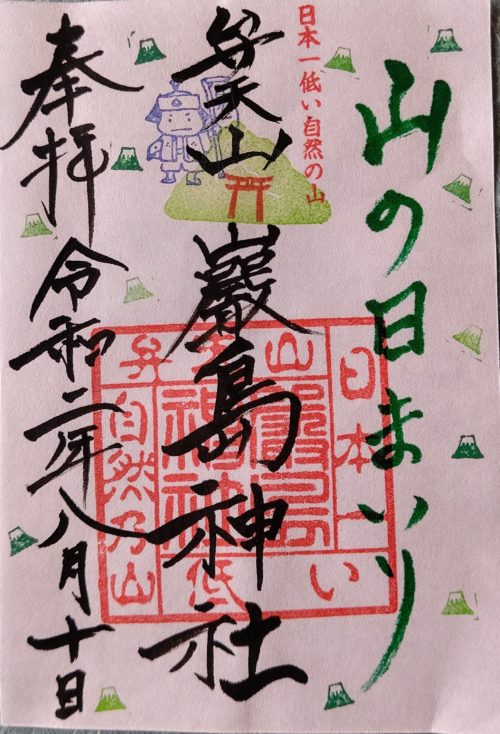 山の日まいり
日本一低い自然の山
弁天山
巖島神社
奉拝
令和二年八月十日
日本一
低い
弁天山
自然乃山